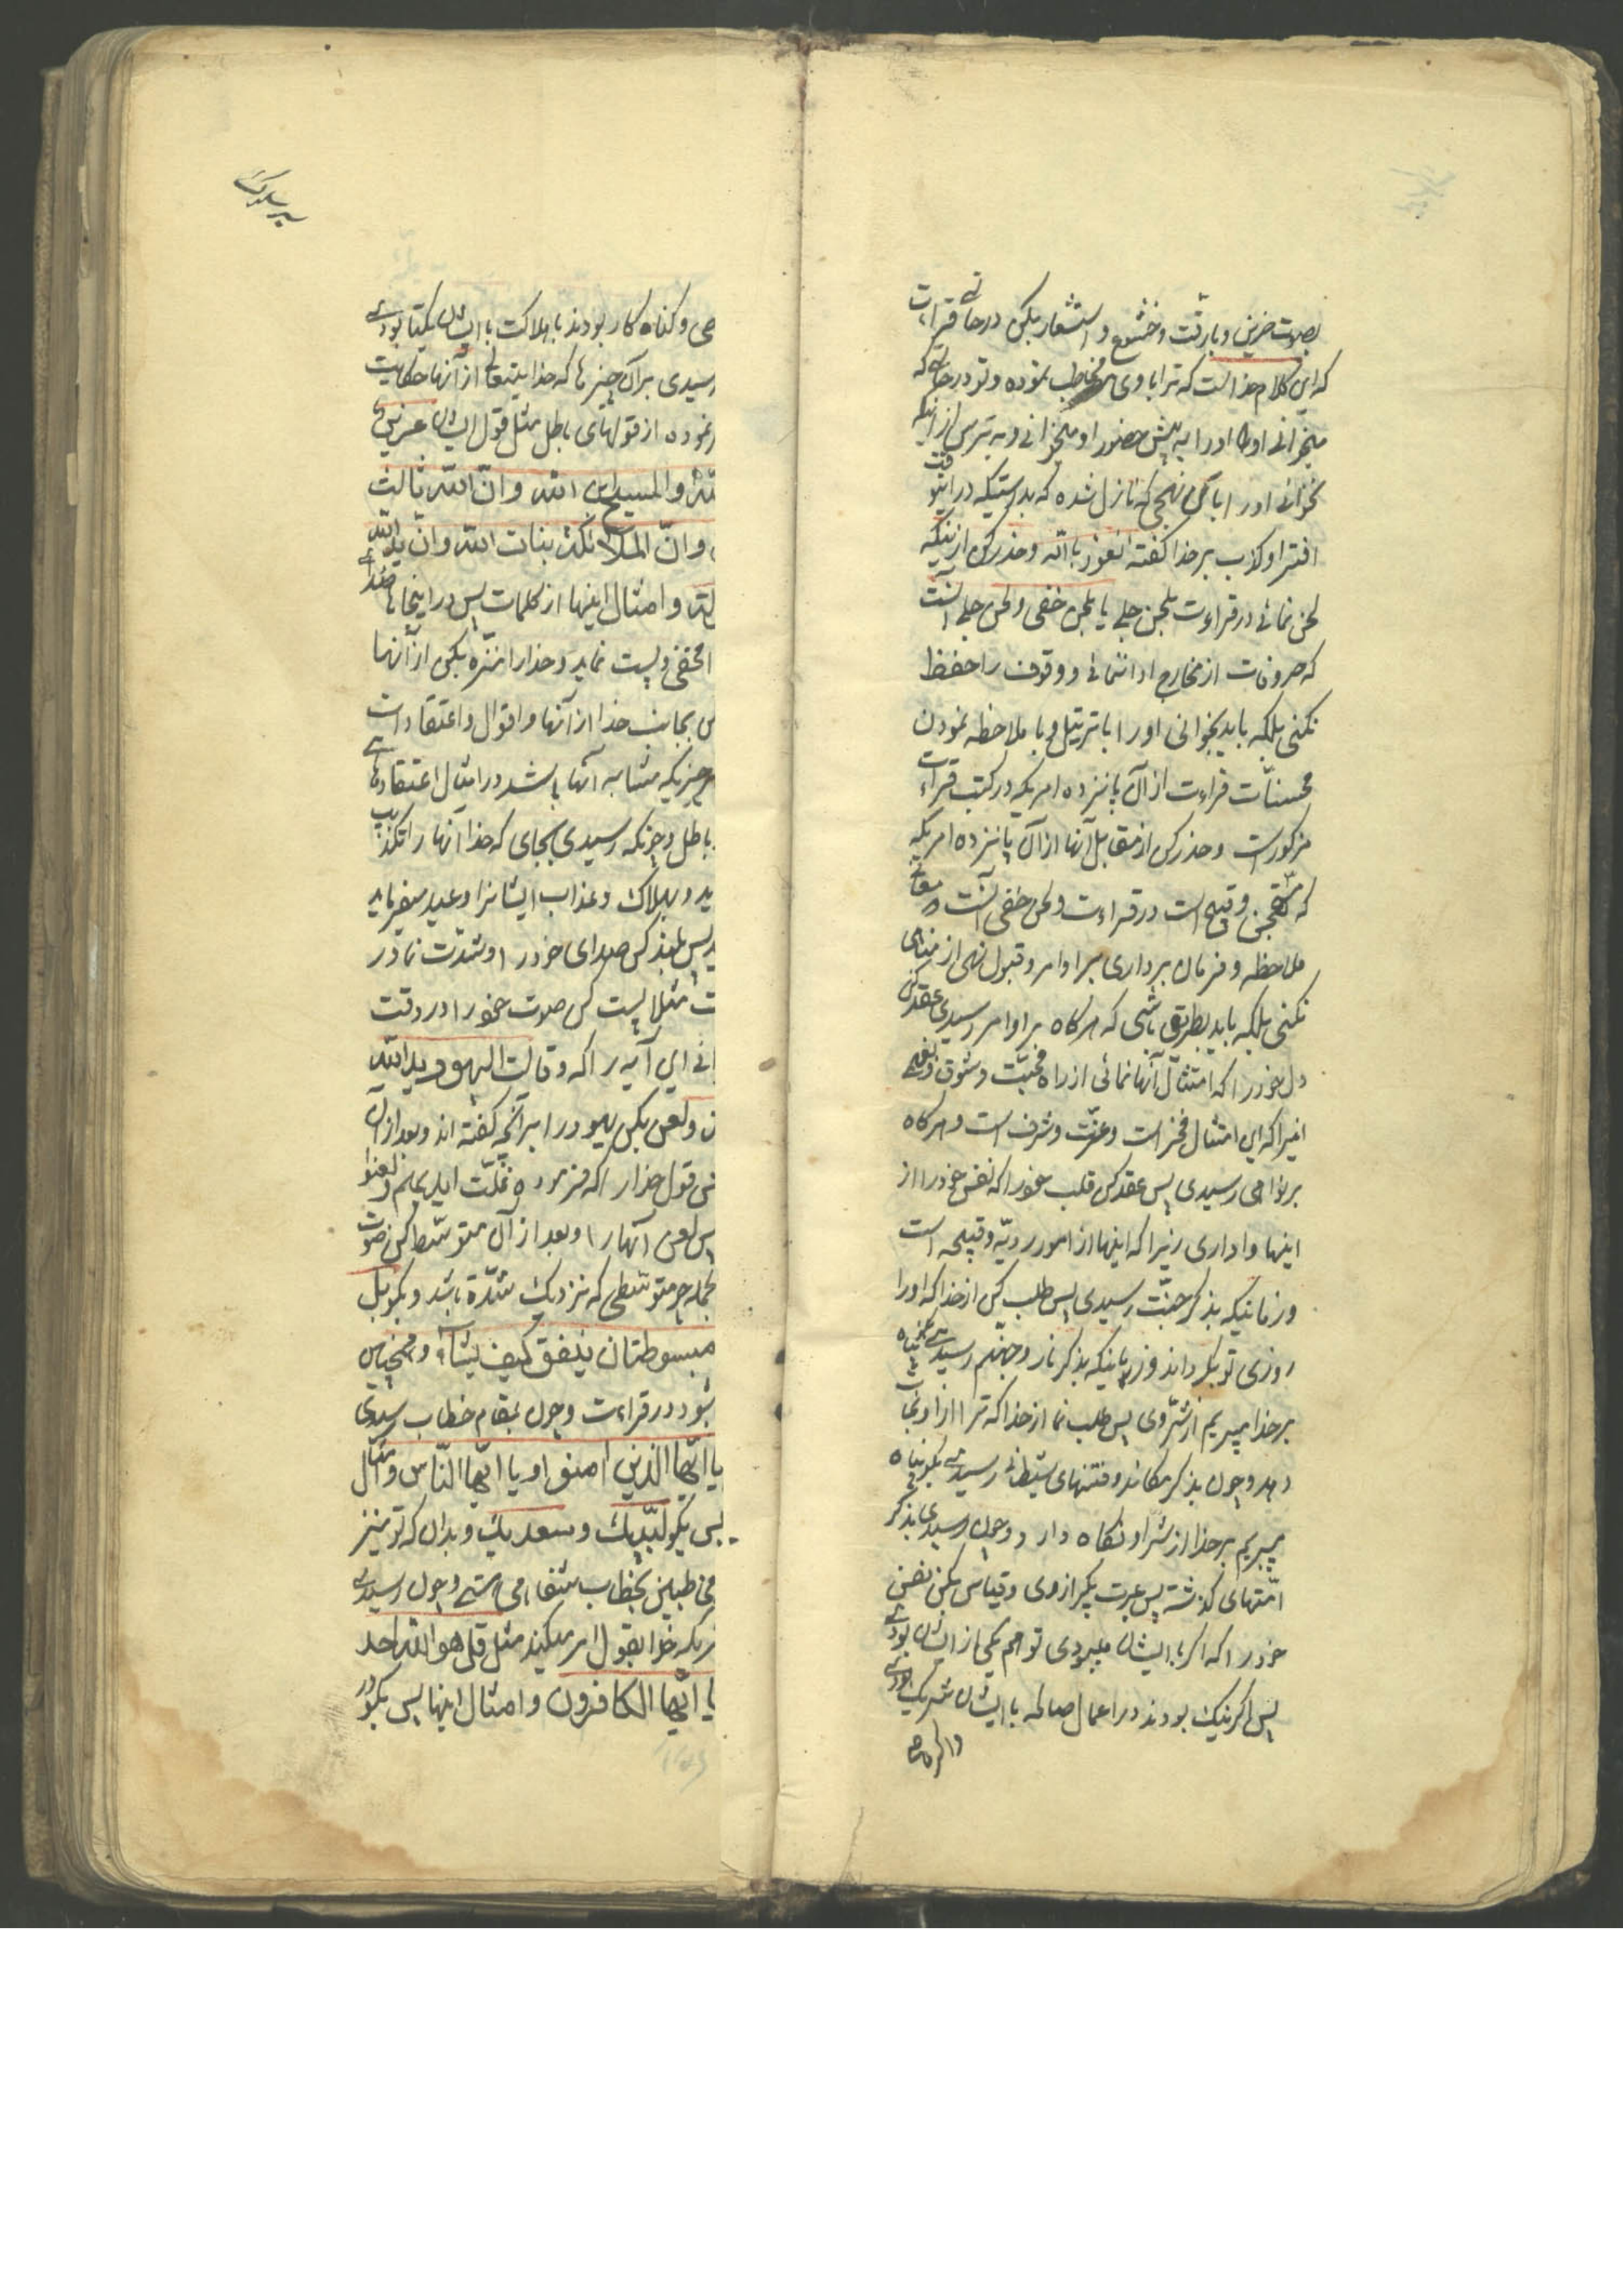 بصوت حزین و با رقت و خشوع و استشعار بکن در حالتی قراءت
که این کلام خداست که ترا باوی مخاطب نموده و تو در حالتی که
میخوانی او را به پیش حضور او میخوانی و به ترس از اینکه
نخوانی او را با آن نهجی که نازل شده که بدرستیکه در اینوقت
افترا و کذب بر خدا گفته نعوذ باالله و حذر کن از اینکه
لحن نمائی در قراءت بلحن جلی یا بلحن خفی و لحن جلی آنست
که حروفات از مخارج ادا ننمائی و وقوف را حفظ
نکنی بلکه باید بخوانی او را با ترتیل و با ملاحظه نمودن
محسنات قراءت از آن پانزده امریکه در کتب قراءت
مذکور است و حذر کن از مقابل آنها از آن پانزده امریکه
که و قبیح است در قراءت و لحن خفی آنست
ملاحظه و فرمان برداری بر اوامر و قبول نهی از مناهی
نکنی بلکه باید بطریق باشی که هرگاه بر اوامر رسیدی عقد کن
دل خود را که امتثال آنها نمائی از راه محبت و شوق
زیرا که این امتثال فخر است و عزت و شرف است و هرگاه
بر نواهی رسیدی پس عقد کن قلب خود را که نفس خود را از
اینها واداری زیرا که اینها از امور ردیه و قبیحه است
و زمانیکه بذکر جنت رسیدی پس طلب کن از خدا که او را
روزی تو بگرداند و زمانیکه بذکر نار و جهنم رسیدی پناه
بر خدا میبریم از شر وی پس طلب نما از خدا که ترا از او نجات
دهد و چون بذکر مکائد و فتنهای شیطانی رسیدی بگو پناه
میبریم بر خدا از شر او نگاه دارد و چون رسیدی بذکر
امتهای گذشته پس عبرت بگیر از وی و قیاس بکن نفس
خود را که اگر با ایشان میبودی تو هم یکی از ایشان بودی
پس اگر نیک بودند در اعمال صالحه با ایشان شریک بودی
و اگر عاصی
صی و گناه کار بودند با هلاکت با ایشان یکتا بودی
رسیدی بر آن چیزها که خدایتعالی از آنها حکایت
نموده از قولهای باطل مثل قول ایشان عزیر
الله و المسیح ابن الله و ان الله ثالث
و ان الملائکة بنات الله و ان ید الله
و امثال اینها از کلمات پس در اینجاها صدا
مخفی و پست نماید و خدا را منزه بکن از آنها
س بجانب خدا از آنها و اقوال و اعتقادات
هر چیزیکه مشابه آنها باشد در امثال اعتقادهای
باطل و چونکه رسیدی بجای که خدا آنها را تکذیب
ید و بهلاک و عذاب ایشانرا وعید میفرماید
ید پس بلند کن صدای خود را و شدت نما در
ت مثلا پست کن صوت خود را در وقت
انی این آیه را که و قالت الیهود ید الله
ن و لعن بکن یهود را بر آنچه گفته اند و بعد از آن
نی قول خدا را که فرموده غلت ایدیهم و لعنوا
پس لعن آنها را و بعد از آن متوسط کن صوت
بجمله جهر متوسطی که نزدیک شدة باشد و بگو بل
مبسوطتان ینفق کیف یشاء و همچنین
شود در قراءت و چون بمقام خطاب رسیدی
یا ایها الذین امنوا و یا ایها الناس و امثال
پس بگو لبیک و سعدیک و بدان که تو نیز
مخاطبین بخطاب شفاهی هستی و چون رسیدی
نیکه خدا بقول امر میکند مثل قل هو الله احد
یا ایها الکافرون و امثال اینها پس بگو در